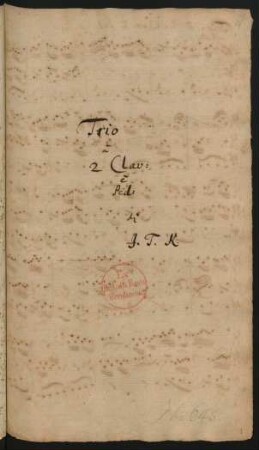 Trio
à
2 Clav:
è
Ped:
J. T. K